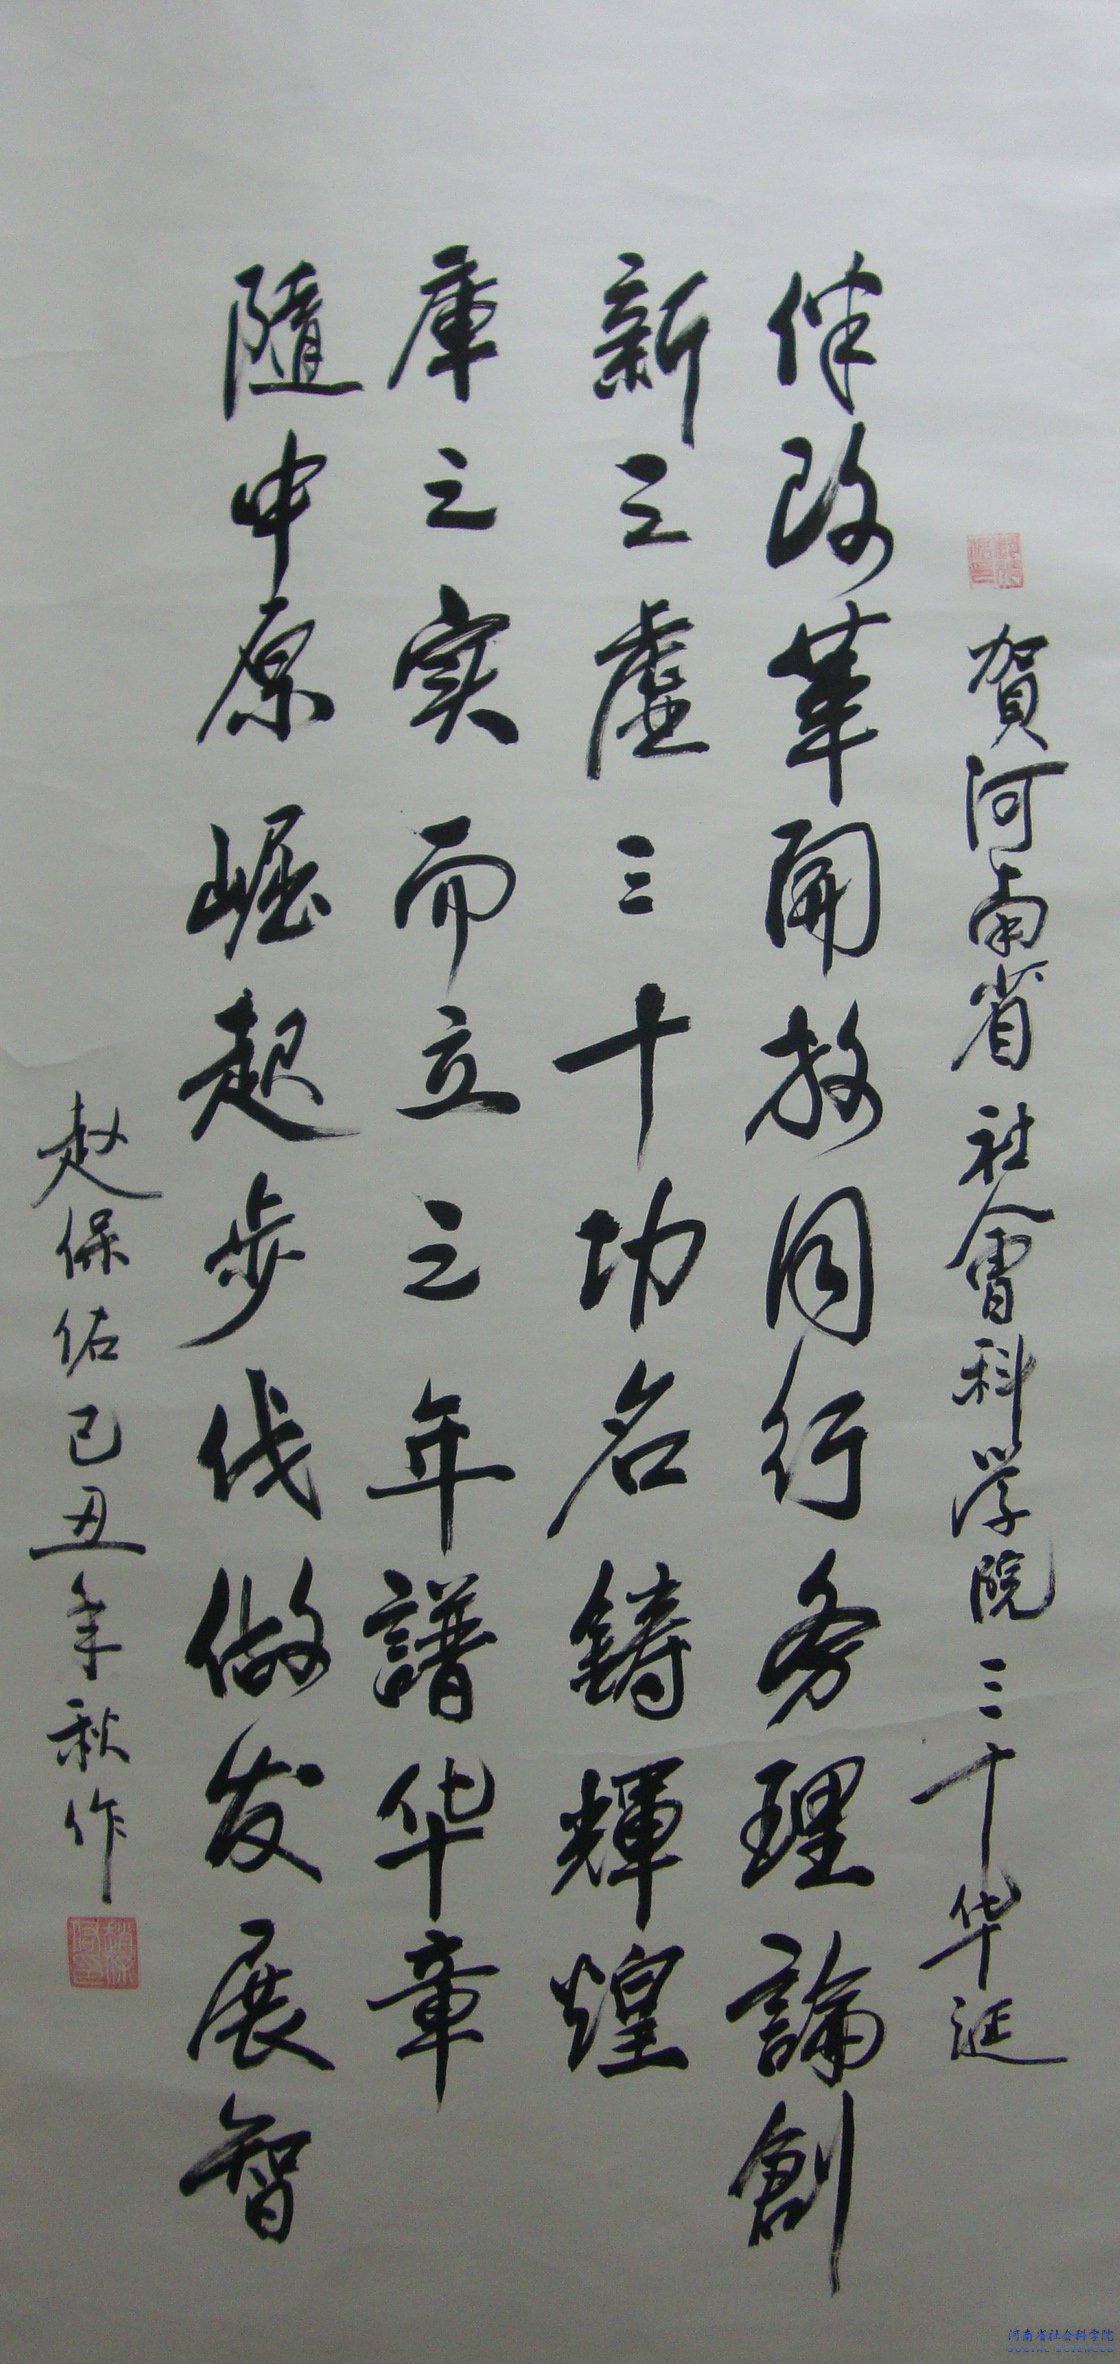 賀河南省社會科学院三十华诞
伴改革開放同行务理論創
新之虚三十功名鑄輝煌
隨中原崛起步伐做发展智
庫之实而立之年譜华章
赵保佑己丑年秋作
河南省社会科学院